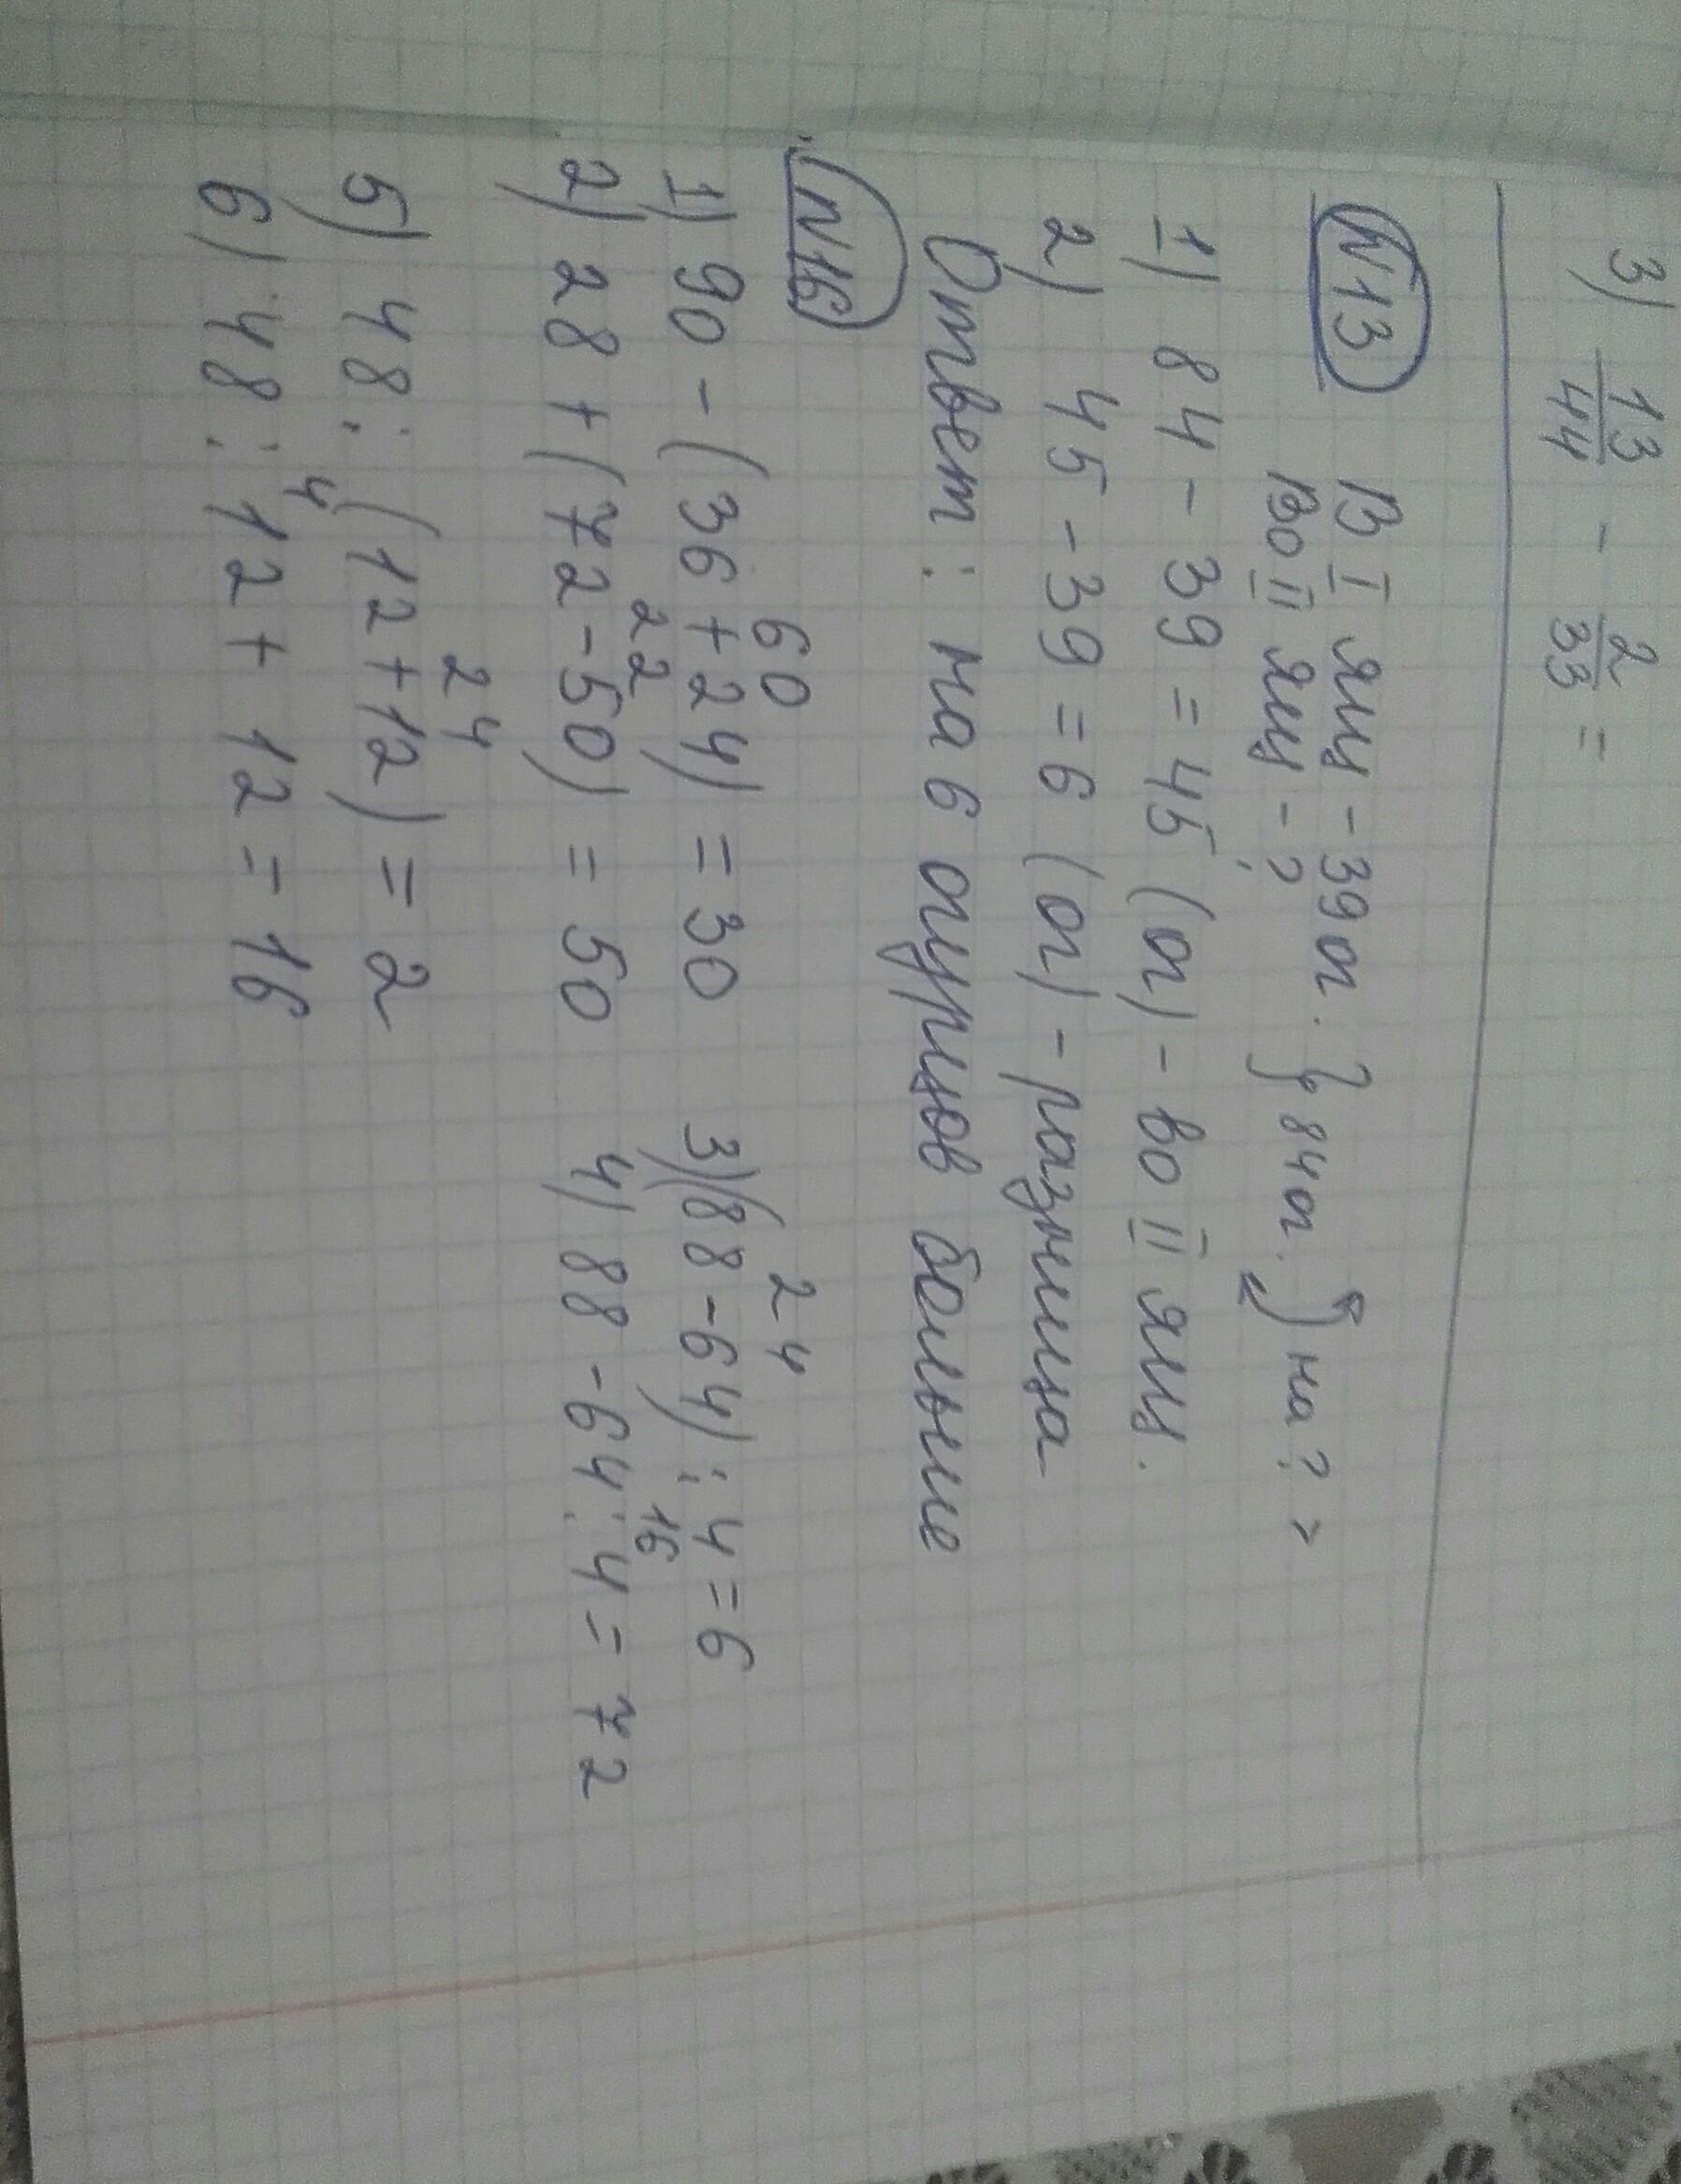 3) 13/44 - 2/33 =
N13 В I ящ - 39 ог. } 84 ог. на ? >
Во II ящ - ?
1) 84 - 39 = 45 (ог) - во II ящ.
2) 45 - 39 = 6 (ог) - разница
Ответ: на 6 огурцов больше
N16
60 24
1) 90 - (36 + 24) = 30 3) (88 - 64) : 4 = 6
22 16
2) 28 + (72 - 50) = 50 4) 88 - 64 : 4 = 72
24
5) 48 : (12 + 12) = 2
4
6) 48 : 12 + 12 = 16